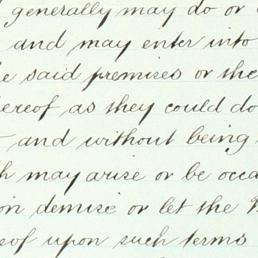 generally may do or
and may enter into
said premises or the
hereof as they could do
and without being
may arise or be occa
demise or let the
eof upon such terms